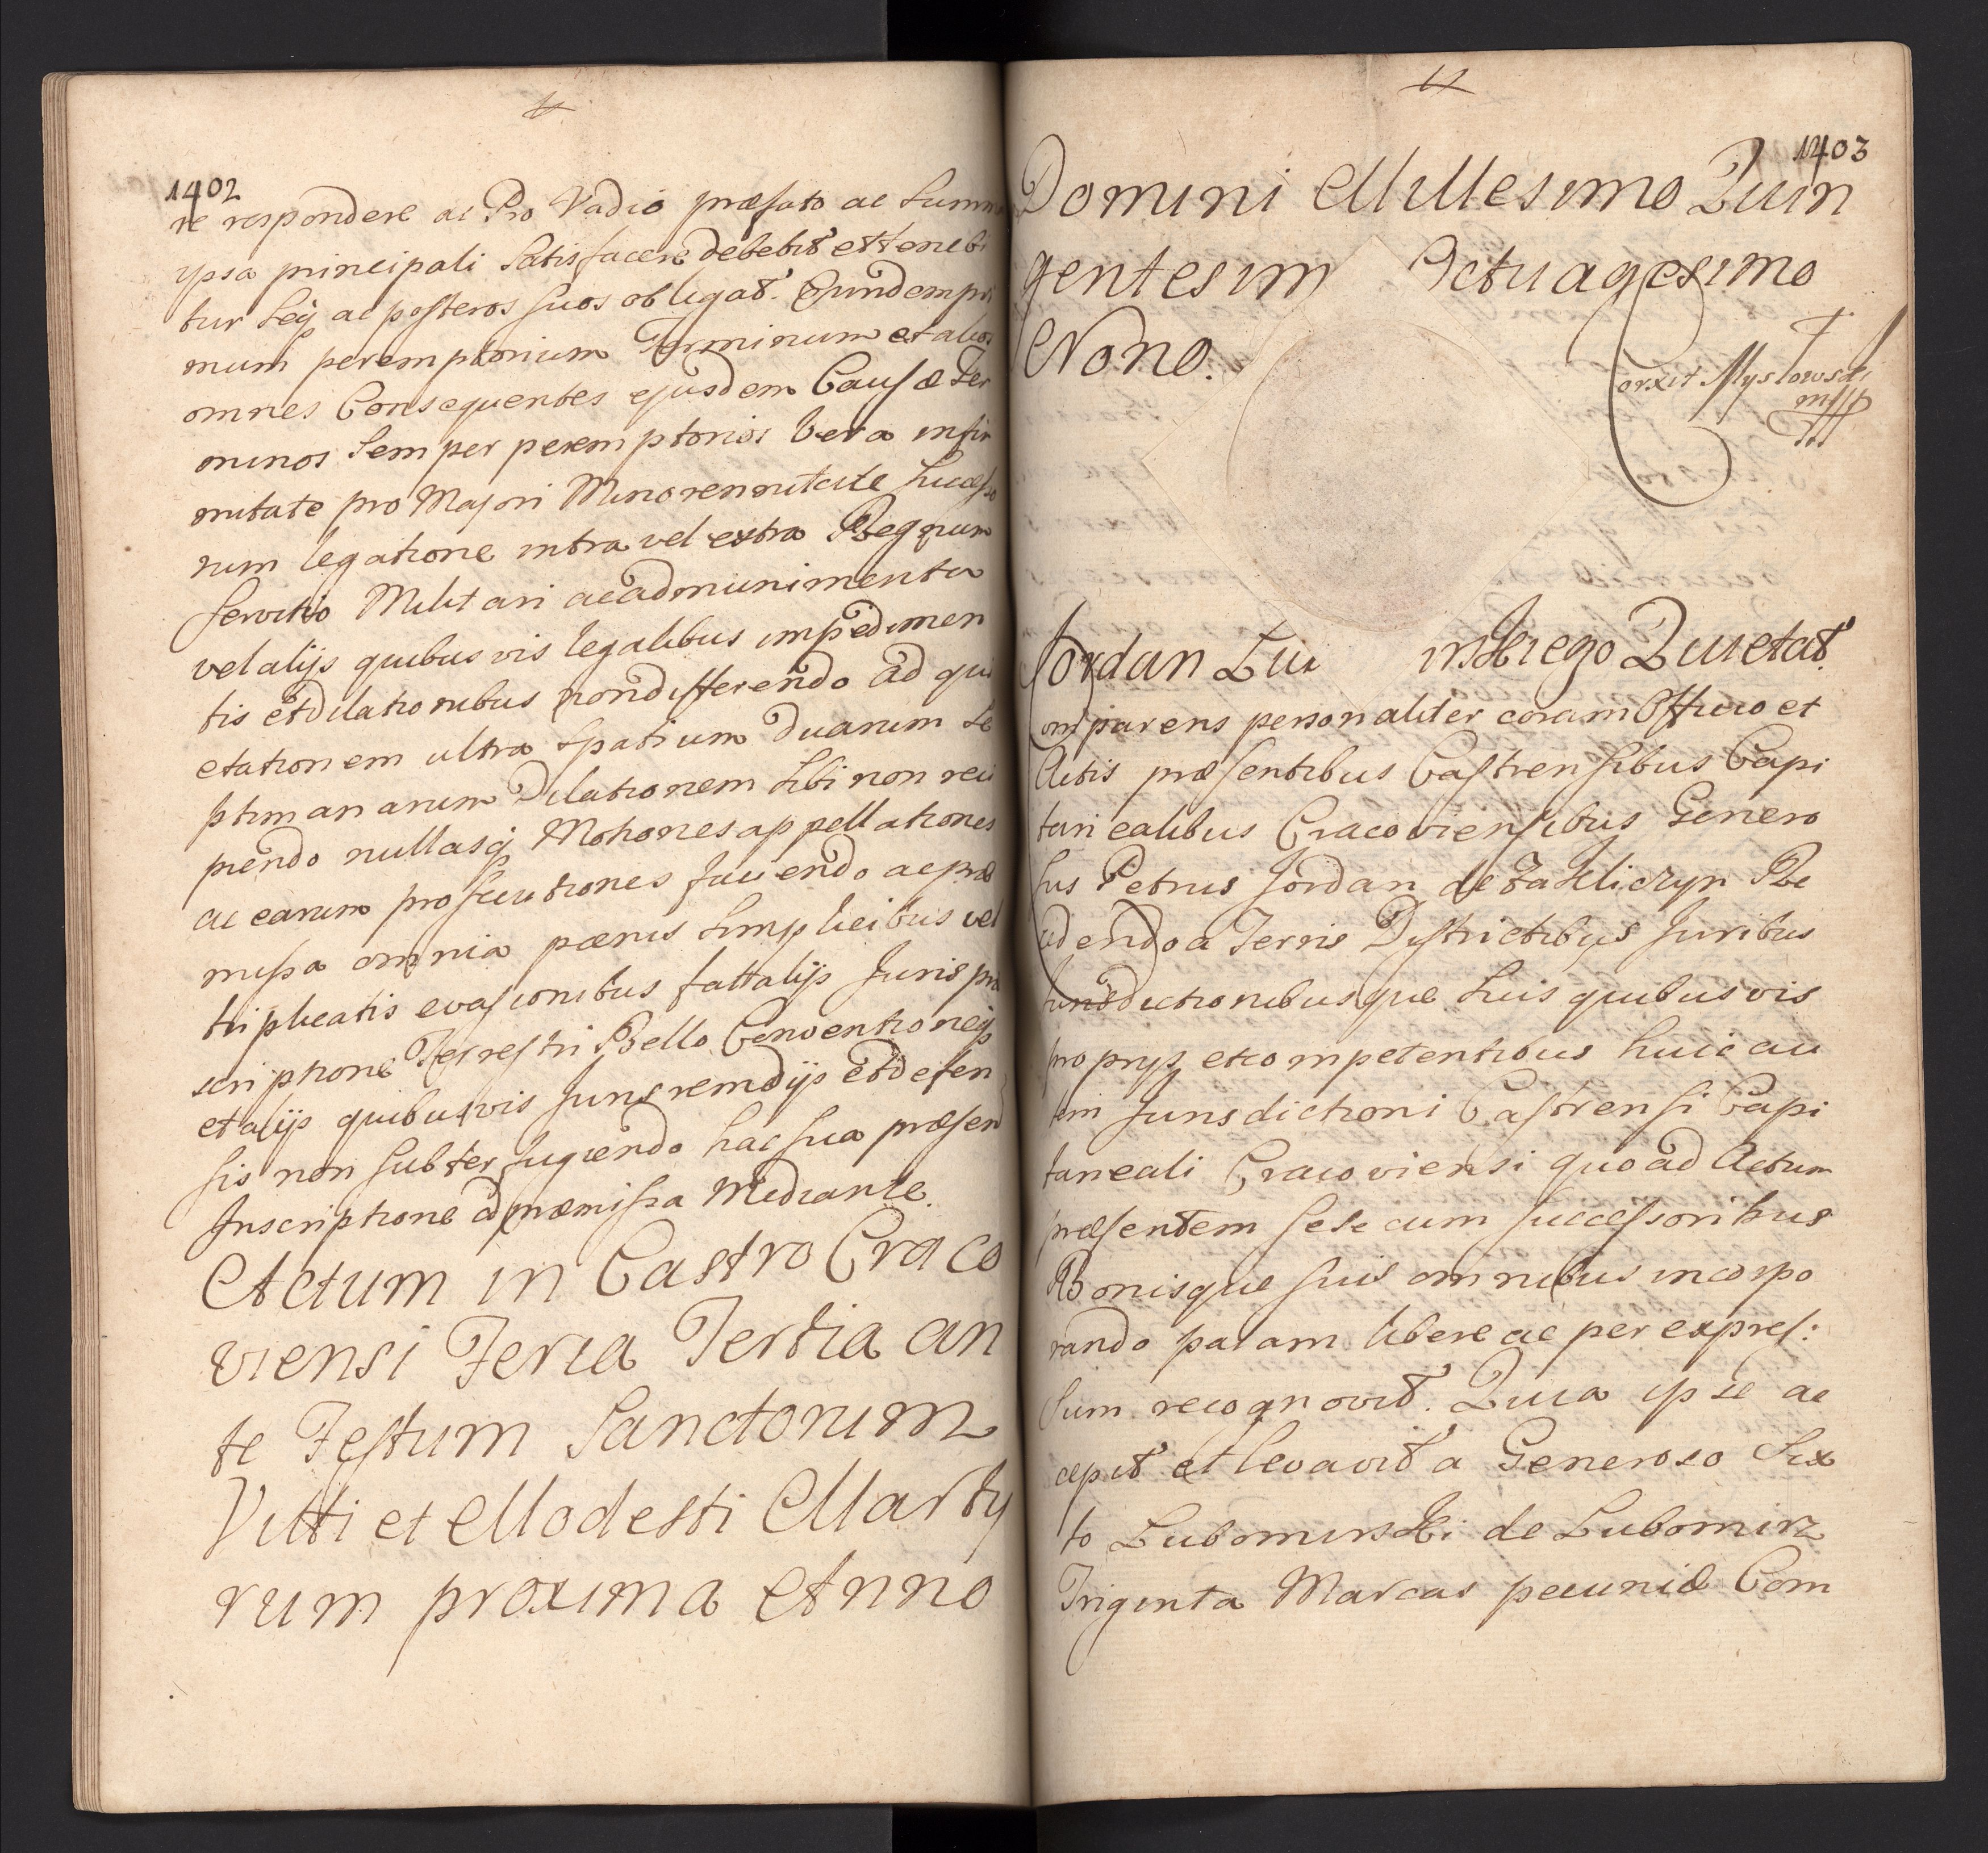 1402
re respondere ac Pro Vadio præfato ac Summa
ypsa principali Satisfacere debebit et tenebi
tur Seq ac posteros suos obligat. Eundem pri
mum peremptorium Terminum et alios
omnes Consequentes ejusdem Causæ Ter
minos Semper peremptorios Vera infir
mitate pro Majori Minorennitate Successo
rum legatione intra vel extra Regnum
servitio Militari ac admunimenta
vel alijs quibusvis legalibus impedimen
tis et dilationibus non differendo ad qui
etationem ultra Spatium duarum Se
ptimanarum Dilationem Sibi non reci
piendo nullasq Motiones appellationes
ac earum prosecutiones faciendo ac præ
missa omnia pænis Simplicibus vel
triplicatis evasionibus fattalijs Juris præ
scriptione Terrestri Bello Conventioneq
et alijs quibusvis Juris remedijs et defen
sis non subterfugiendo hac sua præsen
Inscriptione ad præmissa Mediante.
Actum in Castro Craco
viensi Feria Tertia an
te Festum Sanctorum
Vitti et Modesti Marty
rum proxima Anno
1403
Domini Millesimo Quin
gentesim Octuagesimo
Nono.
Corxit Myslowski
mpp
Jordan Lu mirskiego Quietat.
Comparens personaliter coram Officio et
Actis præsentibus Castrensibus Capi
tanealibus Cracoviensibus Genero
sus Petrus Jordan de Zakliczyn Re
cedendo a Terris Districtibus Juribus
Jurisdictionibusque Suis quibusvis
proprys et competentibus huic au
tem Jurisdictioni Castrensi Capi
taneali Cracoviensi quo ad Actum
præsentem sese cum successoribus
Bonisque suis omnibus incorpo
rando palam libere ac per expres:
sum recognovit. Quia ipse ac
cepit et levavit a Generoso Six
to Lubomirski de Lubomirz
Triginta Marcas pecuniæ Com